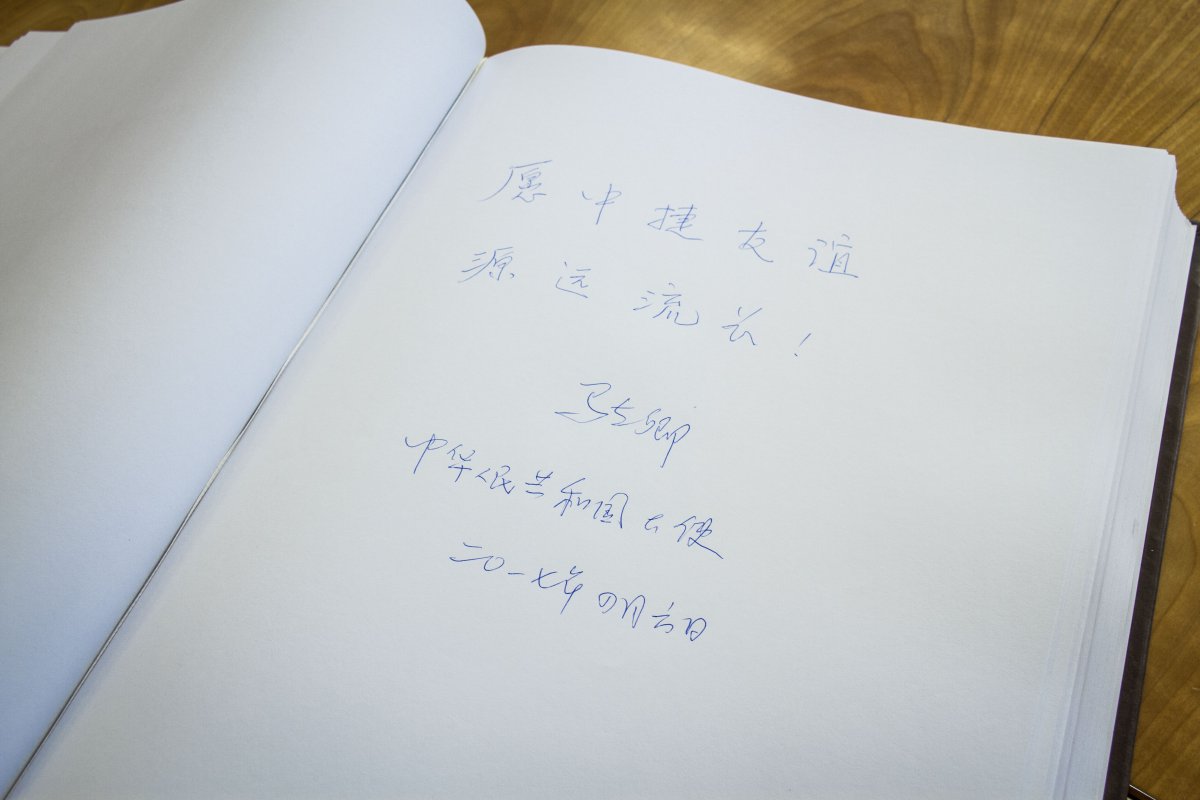 愿中捷友谊
源远流长!
马克卿
中华人民共和国大使
二〇一七年四月六日